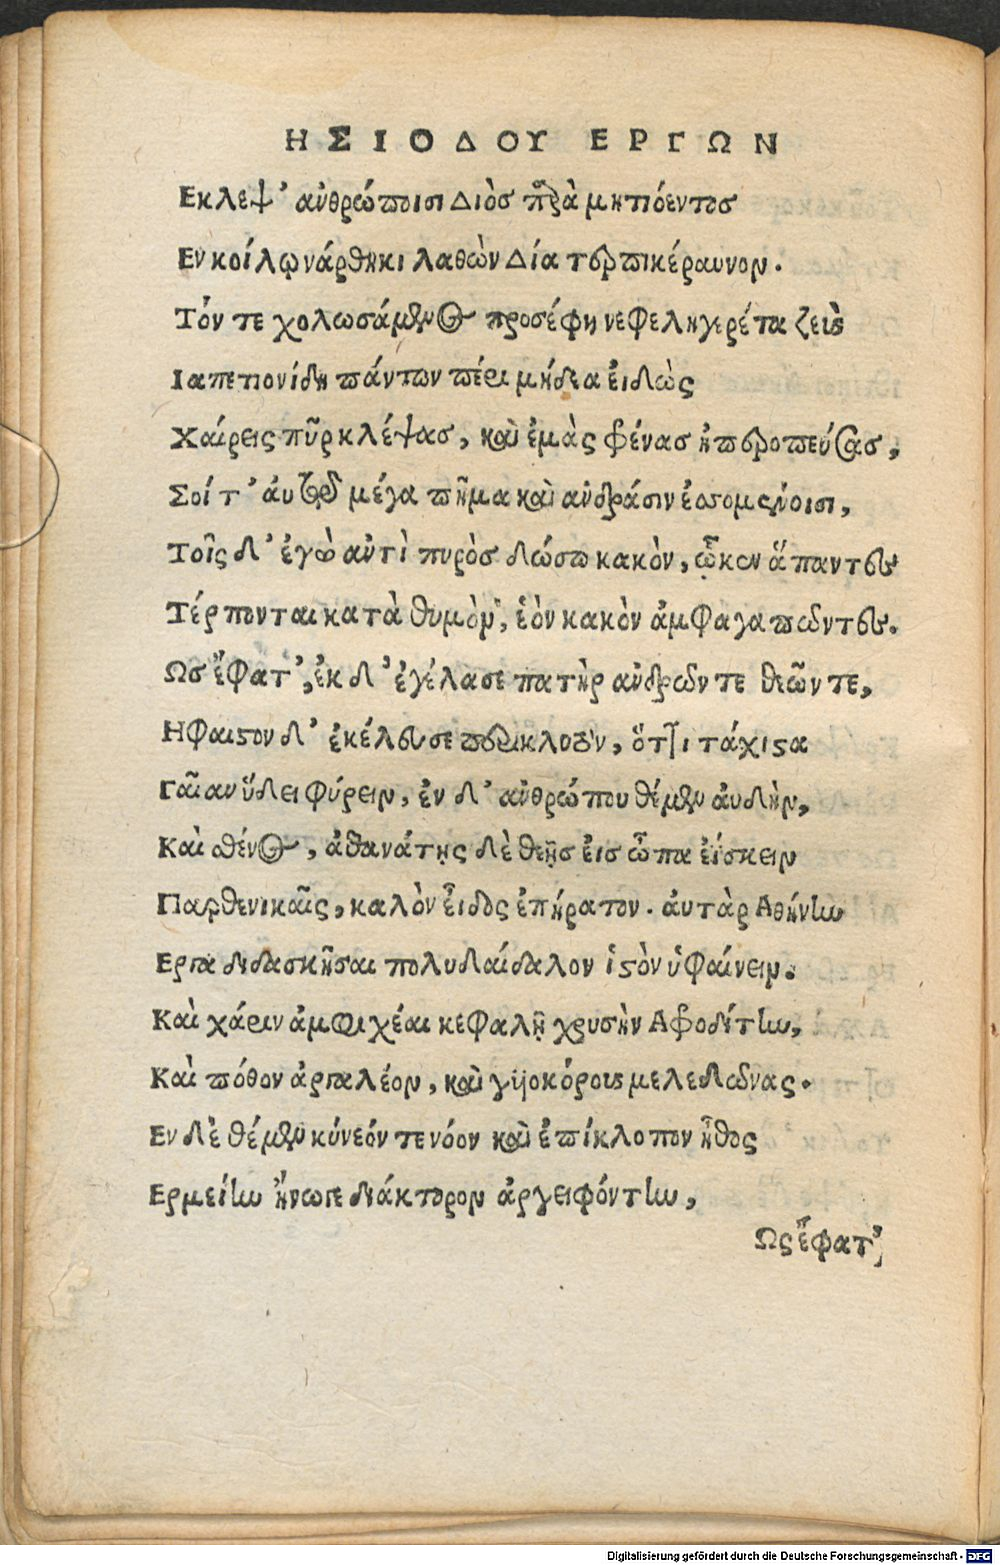 ΗΣΙΟΔΟΥ ΕΡΓΩΝ
Εκλεψ᾽ ἀνθρώποισι Διὸσ παρὰ μητιόεντοσ
Εν κοίλῳ νάρθηκι λαθὼν Δία τερπικέραυνον.
Τὸν τε χολωσάμενος προσέφη νεφεληγερέτα ζεὺς
Ιαπετιονίδη πάντων πέρι μήδεα εἰδὼς
Χαίρεις πῦρ κλέψας, καὶ ἐμὰς φρένασ ἠπεροπεύσασ,
Σοί τ᾽ ἀυτῷ μέγα πῆμα καὶ ἀνδράσιν ἐσσομένοισι,
Τοῖς δ᾽ ἐγὼ ἀντὶ πυρὸσ δώσω κακὸν, ᾧ κεν ἅπαντες
Τέρπονται κατὰ θυμὸν, ἑὸν κακὸν ἀμφαγαπῶντες.
Ωσ ἔφατ᾽, ἐκ δ᾽ ἐγέλασε πατὴρ ἀνδρῶν τε θεῶν τε,
Ηφαιστον δ᾽ ἐκέλευσε περικλυτὸν, ὅττι τάχιστα
Γαῖαν ὕδει φύρειν, ἐν δ᾽ ἀνθρώπου θέμεν ἀυδὴν,
Καὶ σθένος, ἀθανάτῃς δὲ θεῇσ εἰσ ὦπα ἐΐσκειν
Παρθενικαῖς, καλὸν εἶδος ἐπήρατον. ἀυτὰρ Αθήνην
Εργα διδασκῆσαι πολυδαίδαλον ἱστὸν ὑφαίνειν.
Καὶ χάριν ἀμφιχέαι κεφαλῇ χρυσὴν Αφροδίτην,
Καὶ πόθον ἀργαλέον, καὶ γυιοκόρους μελεδῶνας.
Εν δὲ θέμεν κύνεόν τε νόον καὶ ἐπίκλοπον ἦθος
Ερμείην ἤνωγε διάκτορον ἀργειφόντην,
Ως ἔφατ᾽,
Digitalisierung gefördert durch die Deutsche Forschungsgemeinschaft - DFG